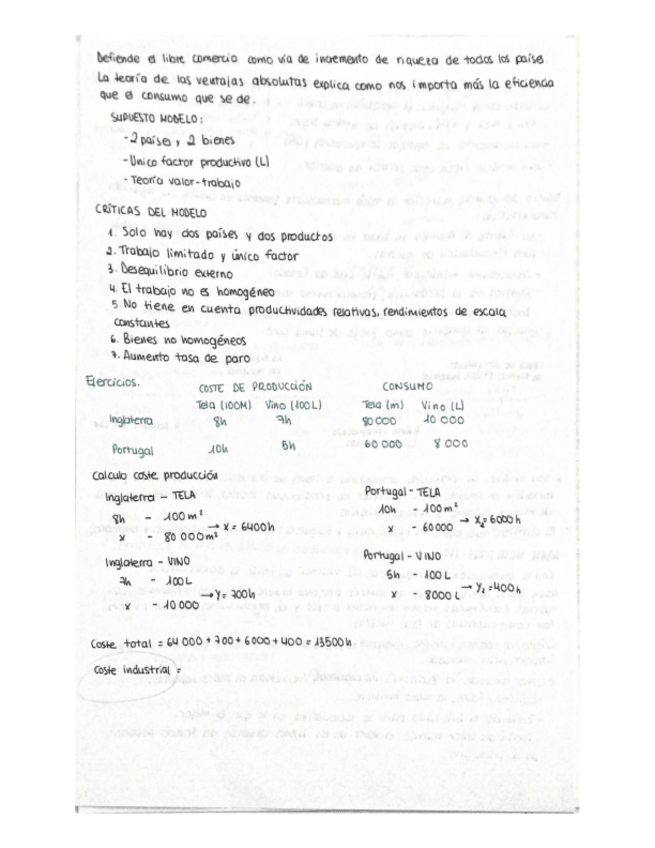 Defiende el libre comercio como vía de incremento de riqueza de todos los países
La teoría de las ventajas absolutas explica como nos importa más la eficiencia
que el consumo que se de.
SUPUESTO MODELO:
- 2 países y 2 bienes
- Unico factor productivo (L)
- Teoría valor-trabajo
CRÍTICAS DEL MODELO
1. Solo hay dos países y dos productos
2. Trabajo limitado y único factor
3. Desequilibrio externo
4. El trabajo no es homogéneo
5. No tiene en cuenta productividades relativas, rendimientos de escala
constantes
6. Bienes no homogéneos
7. Aumento tasa de paro
Ejercicios. COSTE DE PRODUCCIÓN CONSUMO
Tela (100M) Vino (100L) Tela (m) Vino (L)
Inglaterra 8h 7h 80000 10 000
Portugal 10h 5h 60 000 8 000
Calculo coste producción
Inglaterra - TELA Portugal - TELA
8h - 100 m² 10h - 100 m²
x - 80 000 m² → x = 6400h x - 60000 → X₂ = 6000h
Inglaterra - VINO Portugal - VINO
7h - 100L 5h - 100L
x - 10 000 → Y = 700h x - 8000 L → Y₂ = 400h
Coste total = 64 000 + 700 + 6000 + 400 = 13500h
Coste industrial =